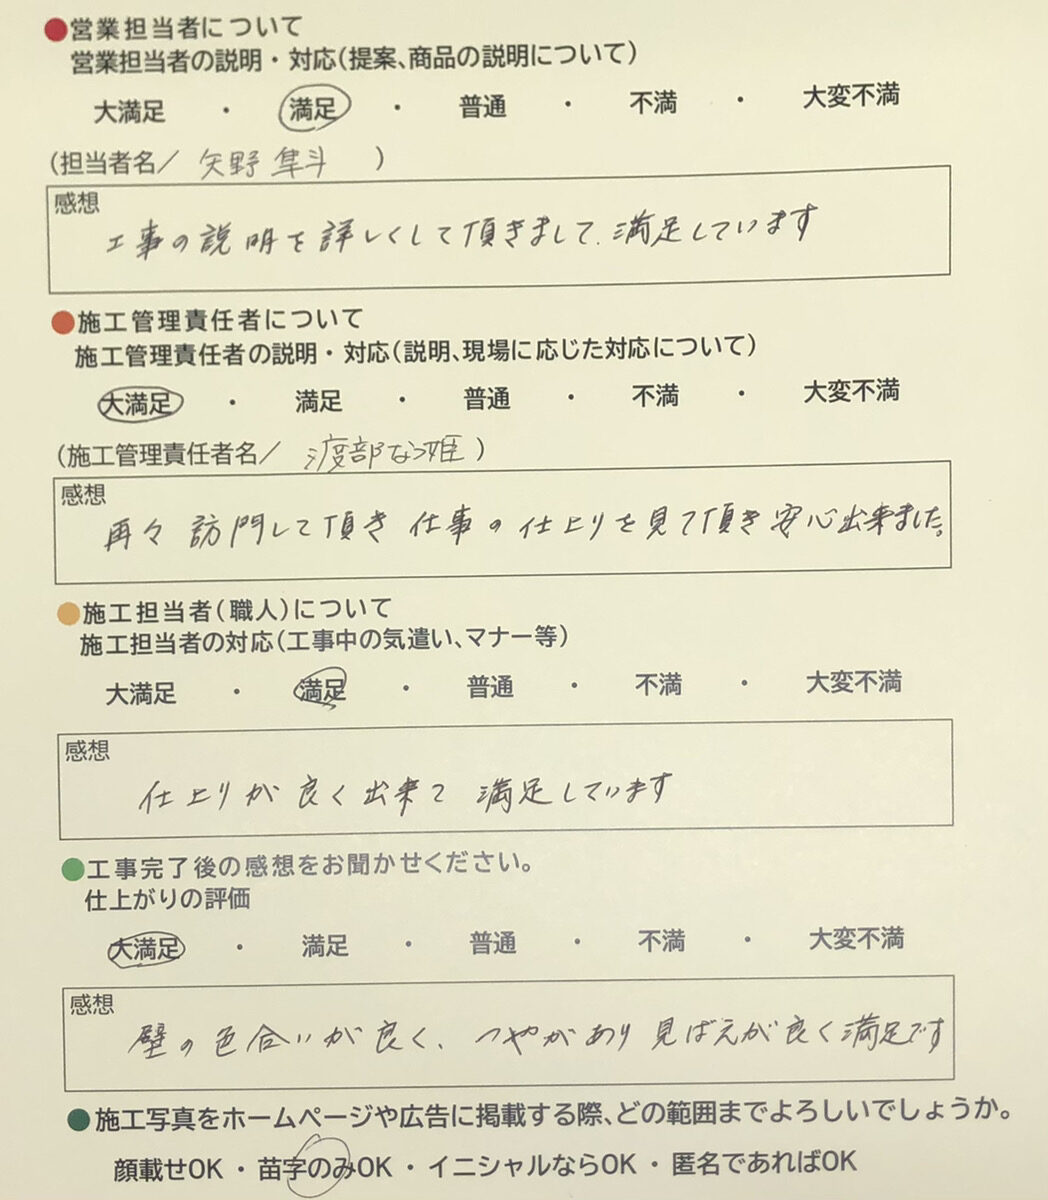 ●営業担当者について
営業担当者の説明・対応(提案、商品の説明について)
大満足 ・ 満足 ・ 普通 ・ 不満 ・ 大変不満
(担当者名/ 矢野 隼斗 )
感想
工事の説明を詳しくして頂きまして、満足しています
●施工管理責任者について
施工管理責任者の説明・対応(説明、現場に応じた対応について)
大満足 ・ 満足 ・ 普通 ・ 不満 ・ 大変不満
(施工管理責任者名/ 渡部 )
感想
再々 訪門して頂き 仕事の仕上りを見て頂き安心出来ました。
●施工担当者(職人)について
施工担当者の対応(工事中の気遣い、マナー等)
大満足 ・ 満足 ・ 普通 ・ 不満 ・ 大変不満
感想
仕上りが良く出来て 満足しています
●工事完了後の感想をお聞かせください。
仕上がりの評価
大満足 ・ 満足 ・ 普通 ・ 不満 ・ 大変不満
感想
壁の色合いが良く、つやがあり見ばえが良く満足です
●施工写真をホームページや広告に掲載する際、どの範囲までよろしいでしょうか。
顔載せOK ・ 苗字のみOK ・ イニシャルならOK ・ 匿名であればOK